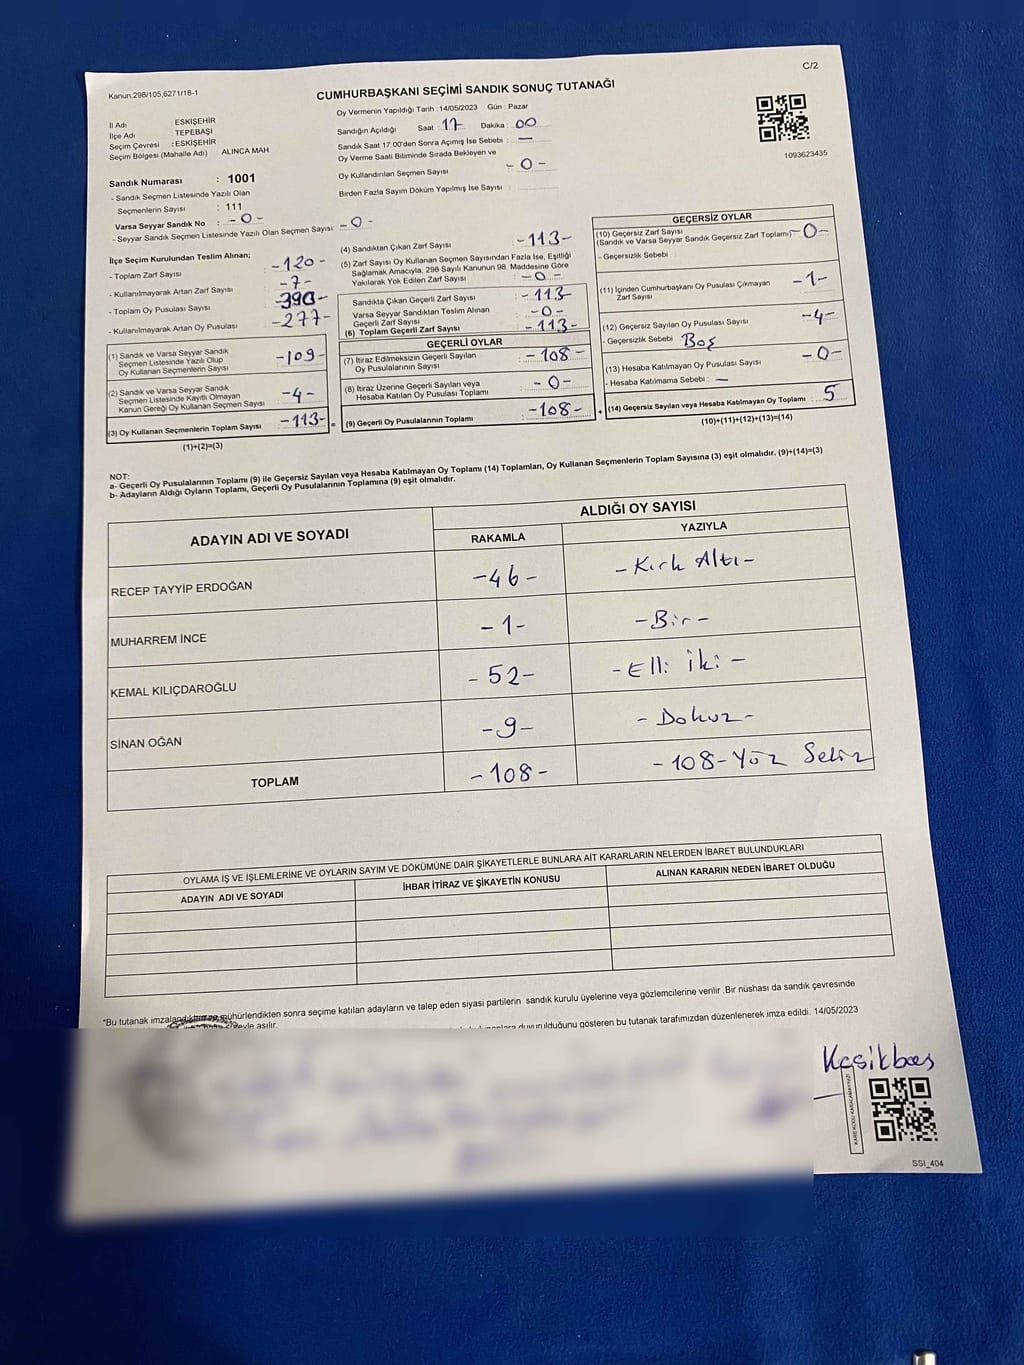 C/2
Kanun:298/105,6271/18-1
CUMHURBAŞKANI SEÇİMİ SANDIK SONUÇ TUTANAĞI
Oy Vermenin Yapıldığı Tarih :14/05/2023 Gün : Pazar
İl Adı : ESKİŞEHİR
İlçe Adı : TEPEBAŞI
Seçim Çevresi : ESKİŞEHİR
Seçim Bölgesi (Mahalle Adı) : ALINCA MAH
Sandığın Açıldığı Saat : 17 Dakika : 00
Sandık Saat 17:00'den Sonra Açımış İse Sebebi : —
Oy Verme Saati Bitiminde Sırada Bekleyen ve
Oy Kullandırılan Seçmen Sayısı : - 0 -
Birden Fazla Sayım Döküm Yapılmış İse Sayısı :
1093623435
Sandık Numarası : 1001
- Sandık Seçmen Listesinde Yazılı Olan
Seçmenlerin Sayısı : 111
Varsa Seyyar Sandık No : - 0 -
- Seyyar Sandık Seçmen Listesinde Yazılı Olan Seçmen Sayısı: - 0 -
İlçe Seçim Kurulundan Teslim Alınan;
- Toplam Zarf Sayısı -120-
- Kullanılmayarak Artan Zarf Sayısı -7-
- Toplam Oy Pusulası Sayısı 390-
- Kullanılmayarak Artan Oy Pusulası -277-
(1) Sandık ve Varsa Seyyar Sandık
Seçmen Listesinde Yazılı Olup
Oy Kullanan Seçmenlerin Sayısı -109-
(2) Sandık ve Varsa Seyyar Sandık
Seçmen Listesinde Kayıtlı Olmayan
Kanun Gereği Oy Kullanan Seçmen Sayısı -4-
(3) Oy Kullanan Seçmenlerin Toplam Sayısı -113-
(1)+(2)=(3)
(4) Sandıktan Çıkan Zarf Sayısı -113-
(5) Zarf Sayısı Oy Kullanan Seçmen Sayısından Fazla İse, Eşitliği
Sağlamak Amacıyla; 298 Sayılı Kanunun 98. Maddesine Göre
Yakılarak Yok Edilen Zarf Sayısı -0-
Sandıkta Çıkan Geçerli Zarf Sayısı -113
Varsa Seyyar Sandıktan Teslim Alınan
Geçerli Zarf Sayısı -0-
(6) Toplam Geçerli Zarf Sayısı -113-
GEÇERLİ OYLAR
(7) İtiraz Edilmeksizin Geçerli Sayılan
Oy Pusulasının Sayısı -108-
(8) İtiraz Üzerine Geçerli Sayılan veya
Hesaba Katılan Oy Pusulası Toplamı -0-
= (9) Geçerli Oy Pusulalarının Toplamı -108-
GEÇERSİZ OYLAR
(10) Geçersiz Zarf Sayısı
(Sandık ve Varsa Seyyar Sandık Geçersiz Zarf Toplamı) -0-
- Geçersizlik Sebebi :
(11) İçinden Cumhurbaşkanı Oy Pusulası Çıkmayan
Zarf Sayısı -1-
(12) Geçersiz Sayılan Oy Pusulası Sayısı -4-
- Geçersizlik Sebebi Boş
(13) Hesaba Katılmayan Oy Pusulası Sayısı -0-
- Hesaba Katılmama Sebebi : —
+ (14) Geçersiz Sayılan veya Hesaba Katılmayan Oy Toplamı : 5
(10)+(11)+(12)+(13)=(14)
NOT:
a- Geçerli Oy Pusulalarının Toplamı (9) ile Geçersiz Sayılan veya Hesaba Katılmayan Oy Toplamı (14) Toplamları, Oy Kullanan Seçmenlerin Toplam Sayısına (3) eşit olmalıdır. (9)+(14)=(3)
b- Adayların Aldığı Oyların Toplamı, Geçerli Oy Pusulalarının Toplamına (9) eşit olmalıdır.
ADAYIN ADI VE SOYADI ALDIĞI OY SAYISI
RAKAMLA YAZIYLA
RECEP TAYYİP ERDOĞAN -46- -Kırk Altı-
MUHARREM İNCE -1- -Bir-
KEMAL KILIÇDAROĞLU -52- -Elli iki-
SİNAN OĞAN -9- -Dokuz-
TOPLAM -108- -108-Yüz Sekiz
OYLAMA İŞ VE İŞLEMLERİNE VE OYLARIN SAYIM VE DÖKÜMÜNE DAİR ŞİKAYETLERLE BUNLARA AİT KARARLARIN NELERDEN İBARET BULUNDUKLARI
ADAYIN ADI VE SOYADI İHBAR İTİRAZ VE ŞİKAYETİN KONUSU ALINAN KARARIN NEDEN İBARET OLDUĞU
*Bu tutanak imzalandıktan ve mühürlendikten sonra seçime katılan adayların ve talep eden siyasi partilerin sandık kurulu üyelerine veya gözlemcilerine verilir .Bir nüshası da sandık çevresinde
asılır.
duyurulduğunu gösteren bu tutanak tarafımızdan düzenlenerek imza edildi. 14/05/2023
Kesikbaş
SSI_404